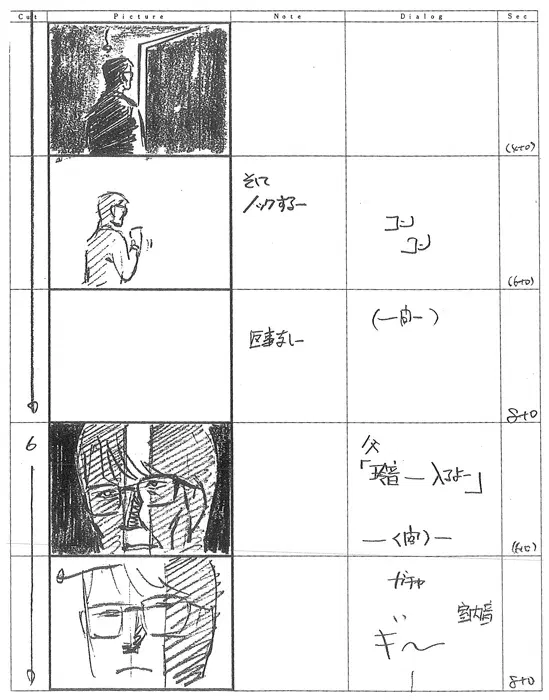 Cut Picture Note Dialog Sec
(4+0)
そして
ノックするー
コンッ
コンッ
(6+0)
返事なしー
(ー間ー)
8+0
6
父
「
ー入るよー」
ー〈間〉ー
(6+0)
ガチャ
ギ〜
室内暗
8+0